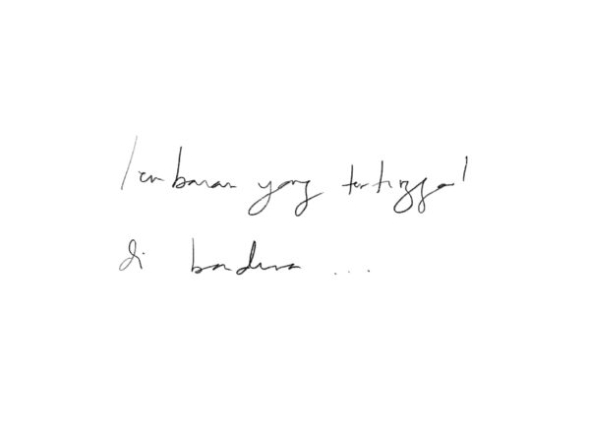 lembaran yang tertinggal
di bandara ...